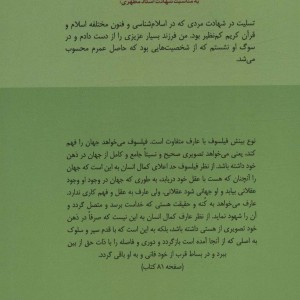 به مناسبت شهادت استاد مطهری:
تسلیت در شهادت مردی که در اسلام‌شناسی و فنون مختلفه اسلام و
قرآن کریم کم‌نظیر بود. من فرزند بسیار عزیزی را از دست دادم و در
سوگ او نشستم که از شخصیت‌هایی بود که حاصل عمرم محسوب
می‌شد.
نوع بینش فیلسوف با عارف متفاوت است. فیلسوف می‌خواهد جهان را فهم
کند، یعنی می‌خواهد تصویری صحیح و نسبتاً جامع و کامل از جهان در ذهن
خود داشته باشد. از نظر فیلسوف حد اعلای کمال انسان به این است که جهان
را آنچنان که هست با عقل خود دریابد، به طوری که جهان در وجود او وجود
عقلانی بیابد و او جهانی شود عقلانی. ولی عارف به عقل و فهم کاری ندارد.
عارف می‌خواهد به کنه و حقیقت هستی که خداست برسد و متصل گردد و
آن را شهود نماید. از نظر عارف کمال انسان به این نیست که صرفاً در ذهن
خود تصویری از هستی داشته باشد، بلکه به این است که با قدم سیر و سلوک
به اصلی که از آنجا آمده است بازگردد و دوری و فاصله را با ذات حق از بین
ببرد و در بساط قرب از خود فانی و به او باقی گردد.
(صفحه ۸۱ کتاب)